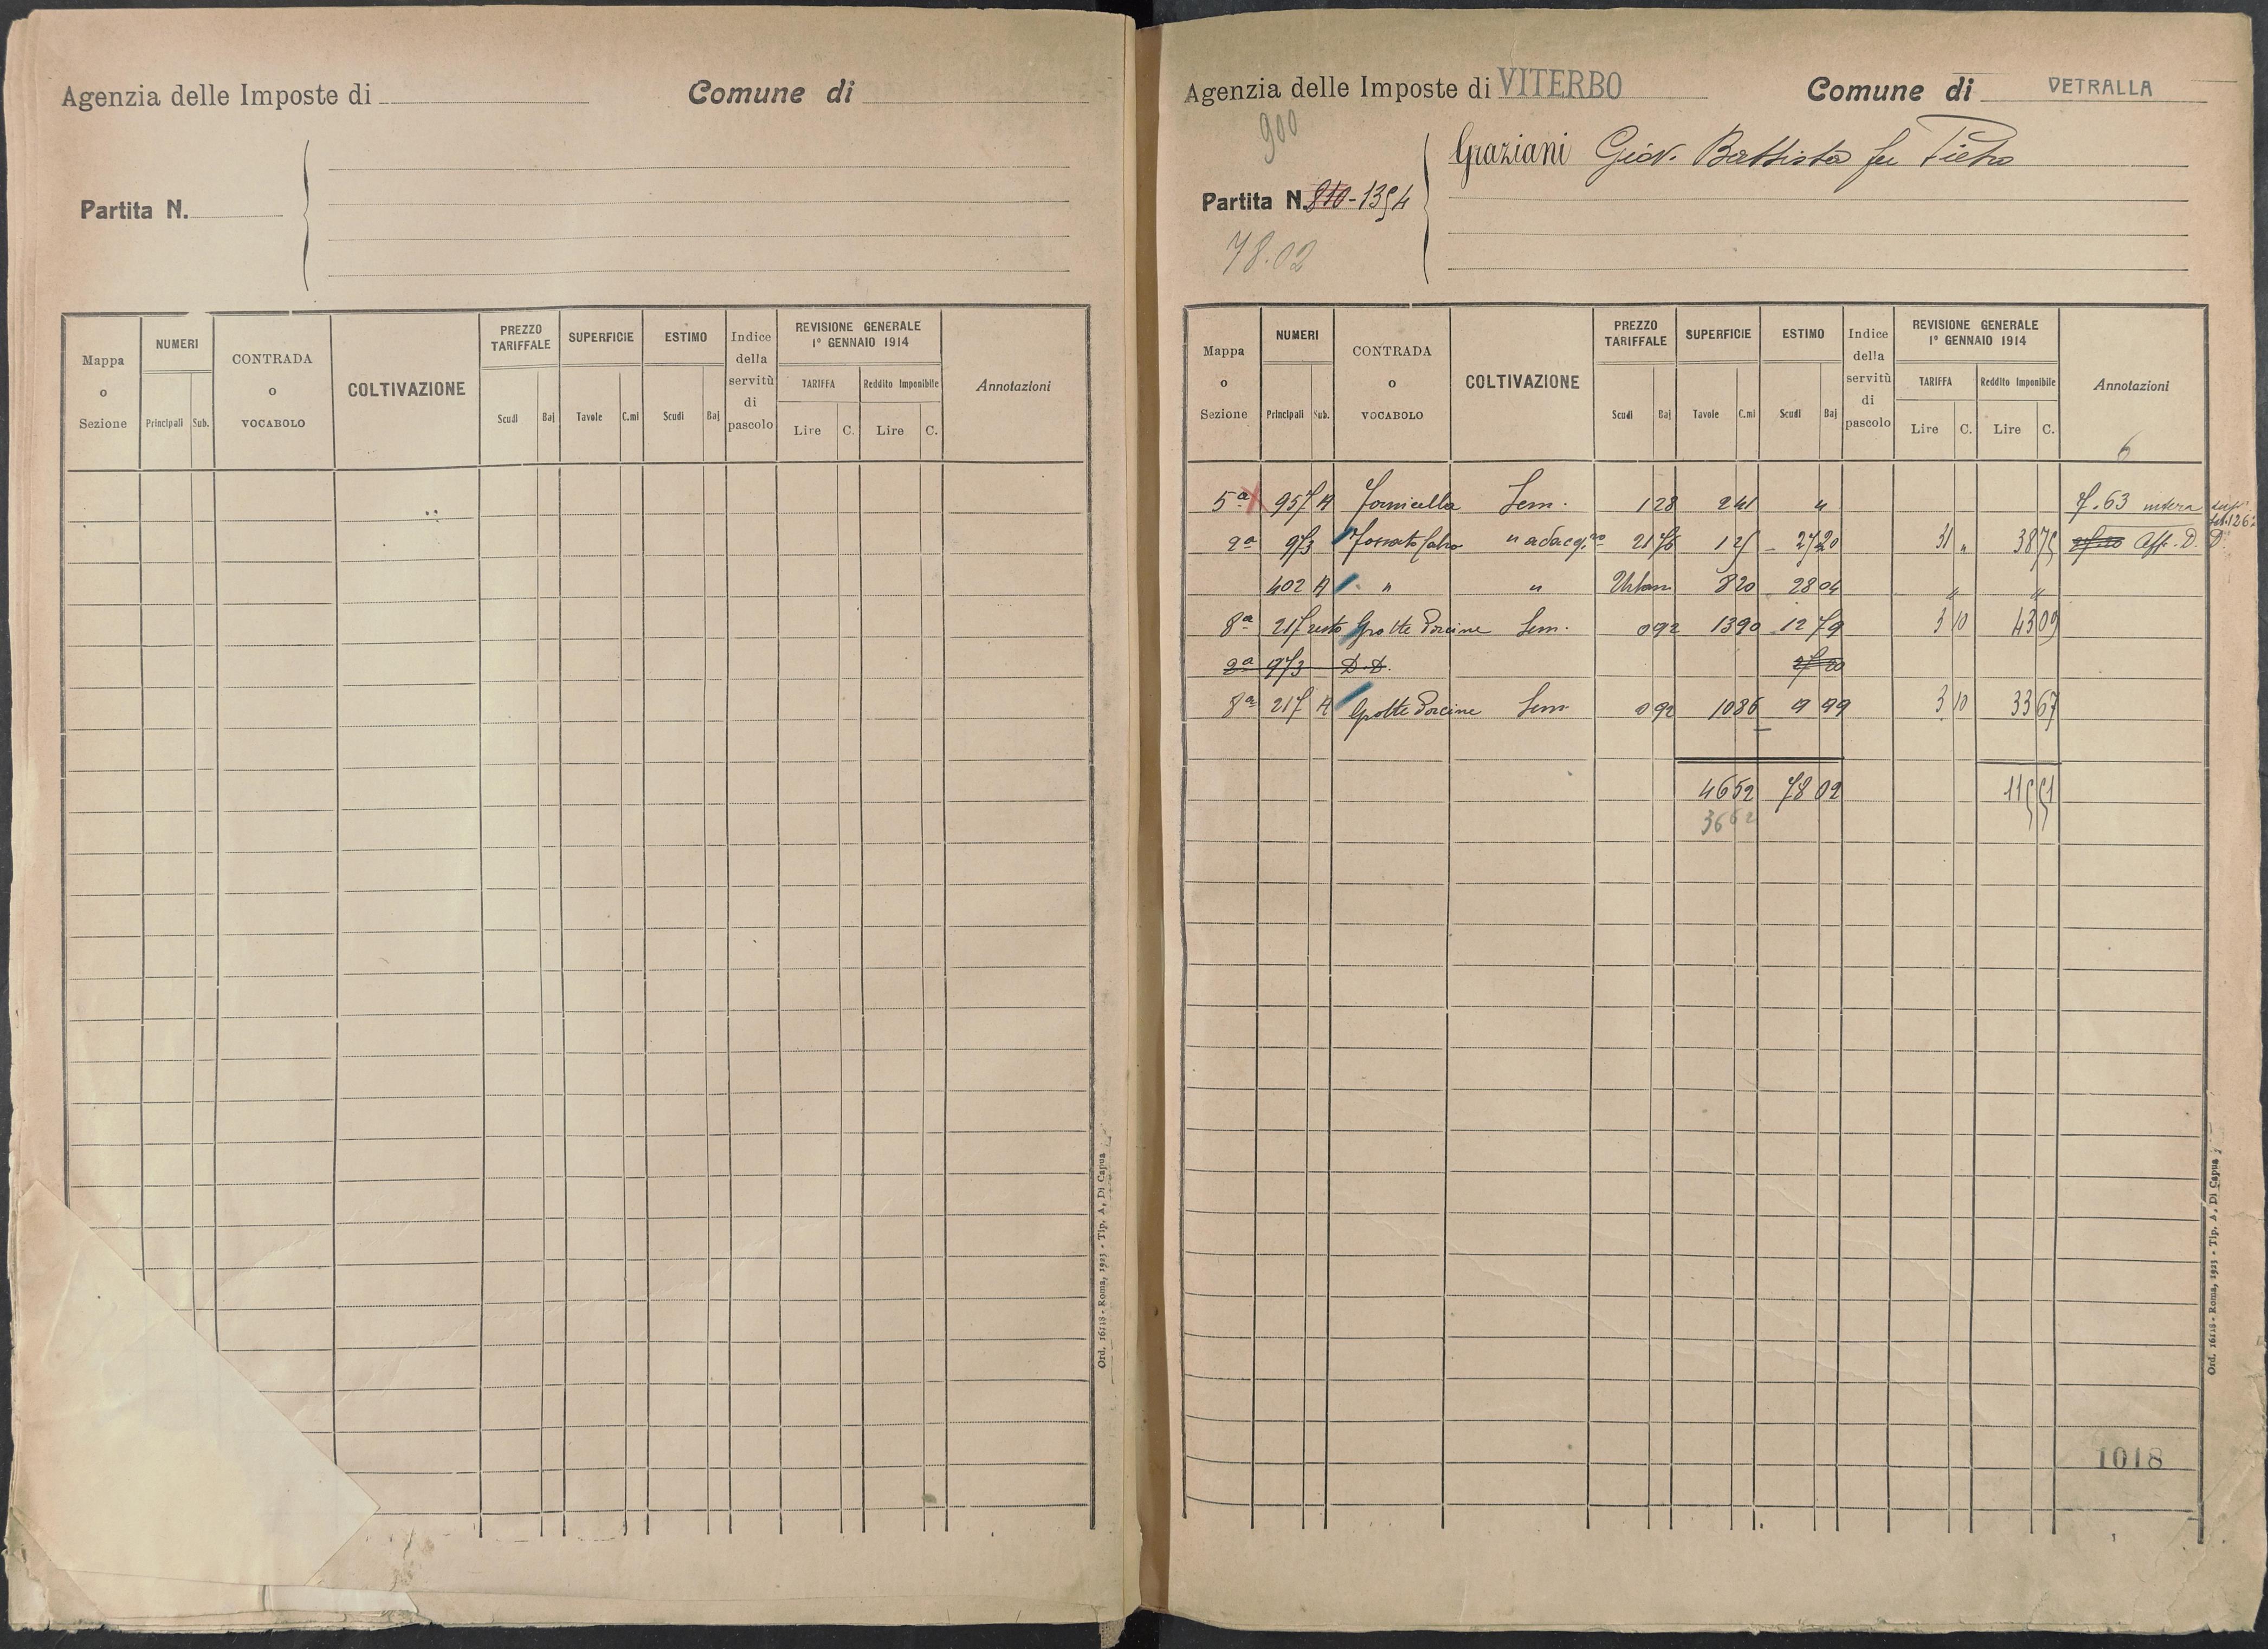 Agenzia delle Imposte di
Comune di
Partita N.
Mappa o Sezione
NUMERI
Principali Sub.
CONTRADA o VOCABOLO
COLTIVAZIONE
PREZZO TARIFFALE
Scudi Baj
SUPERFICIE
Tavole C.mi
ESTIMO
Scudi Baj
Indice della servitù di pascolo
REVISIONE GENERALE
1° GENNAIO 1914
TARIFFA Reddito Imponibile
Lire C. Lire C.
Annotazioni
Ord. 16118 - Roma, 1923 - Tip. A. Di Capua
Agenzia delle Imposte di VITERBO
Comune di VETRALLA
900
Graziani Giov. Battista fu Pietro
Partita N. 810-1354
78.02
Mappa o Sezione
NUMERI
Principali Sub.
CONTRADA o VOCABOLO
COLTIVAZIONE
PREZZO TARIFFALE
Scudi Baj
SUPERFICIE
Tavole C.mi
ESTIMO
Scudi Baj
Indice della servitù di pascolo
REVISIONE GENERALE
1° GENNAIO 1914
TARIFFA Reddito Imponibile
Lire C. Lire C.
Annotazioni
6
5ª 957 A Fornicella Sem. 1 28 2 41 " 7.63 intera
2ª 973 " adacq.ro 21 76 1 25 27 20 31 " 38 75 Aff. D. D.
402 A " " Urban 8 20 28 04 " "
8ª 217 resto Grotte Porcine Sem. 0 92 13 90 12 79 3 10 43 09
2ª 973 D.D. 27 20
8ª 217 A Grotte Porcine Sem. 0 92 10 86 9 99 3 10 33 67
46 52 78 02 115 51
36 62
1018
Ord. 16118 - Roma, 1923 - Tip. A. Di Capua